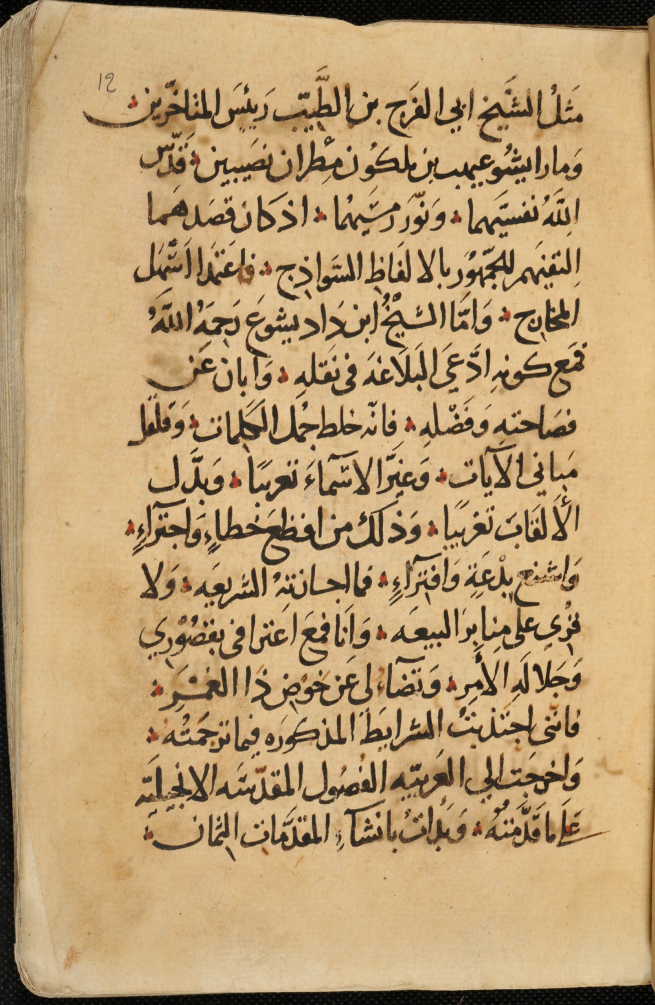 12
مَثلُ الشَيخ ابي الفرج بن الطَّيّب رَيئسَ المتاخّرين
وَمار ايشُوعيهب بن ملكون مطران نصَيبين قدّس
اللّهُ نفسَيهما وَنوّرَ رمسَيهُما اذ كان قصَدهما
التفهيم للجمهُور بالالفاظ السَواذج فاعتمدا اسْهَل
المخارج وَامّا الشيخُ ابن دَاد يشوعَ رَحمَهُ اللّهُ
فمَع كونهِ ادّعَى البَلاغة في نقلهِ وَابان عَن
فصَاحته وَفَضْله فانّه خلط جُمل الكلمات وَقلقل
مَباني الآيات وَغيّرَ الاسْمآءَ تعريبًا وَبدَّل
الألقابَ تغريبًا وَذلك من افظع خطاءٍ وَاجترآءٍ
وَاشنع بدْعَةٍ وَافترآءٍ فما اجازتهُ الشريعَه وَلا
قرُي على منابرَ البيعَه وَانا فمعَ اعترافي بقصُوري
وَجلالهَ الأمرِ وَتضآءلي عَن خوْض ذا الغمْرِ
فانني اجتذبتُ الشرايطَ المذكورَه فيما ترجمتُه
وَاخرجت الي العَربيّه الفُصُول المقدّسَه الانجيليّه
عَلَى ما قدَّمتهُ وَبدَاتُ بانشآءِ المقدّمات الثمان